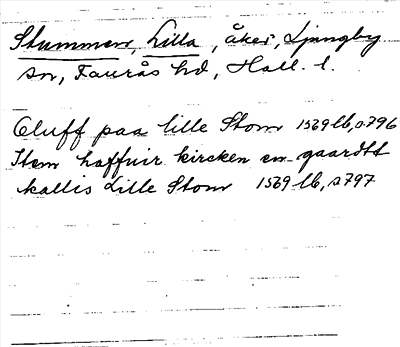 Stummen, Lilla, åker, Ljungby
sn, Faurås hd, Hall. l.
Oluff paa lille Stom 1569 lb, s 796
Item haffuir kircken en gaardtt
kallis Lille Stom 1569 lb, s 797